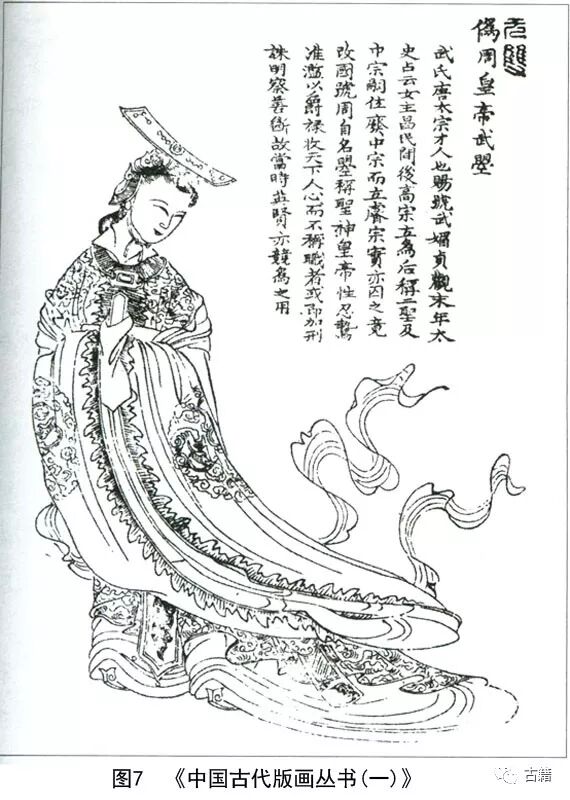 无雙
僞周皇帝武曌
武氏唐太宗才人也賜號武媚貞觀末年太
史占云女主昌民間後高宗立為后稱二聖及
中宗嗣位廢中宗而立睿宗實亦囚之竟
改國號周自名曌稱聖神皇帝性忍鷙
濫以爵祿收天下人心而不稱職者或即加刑
誅明察善斷故當時英賢亦競為之用
图7 《中国古代版画丛书(一)》
古籍